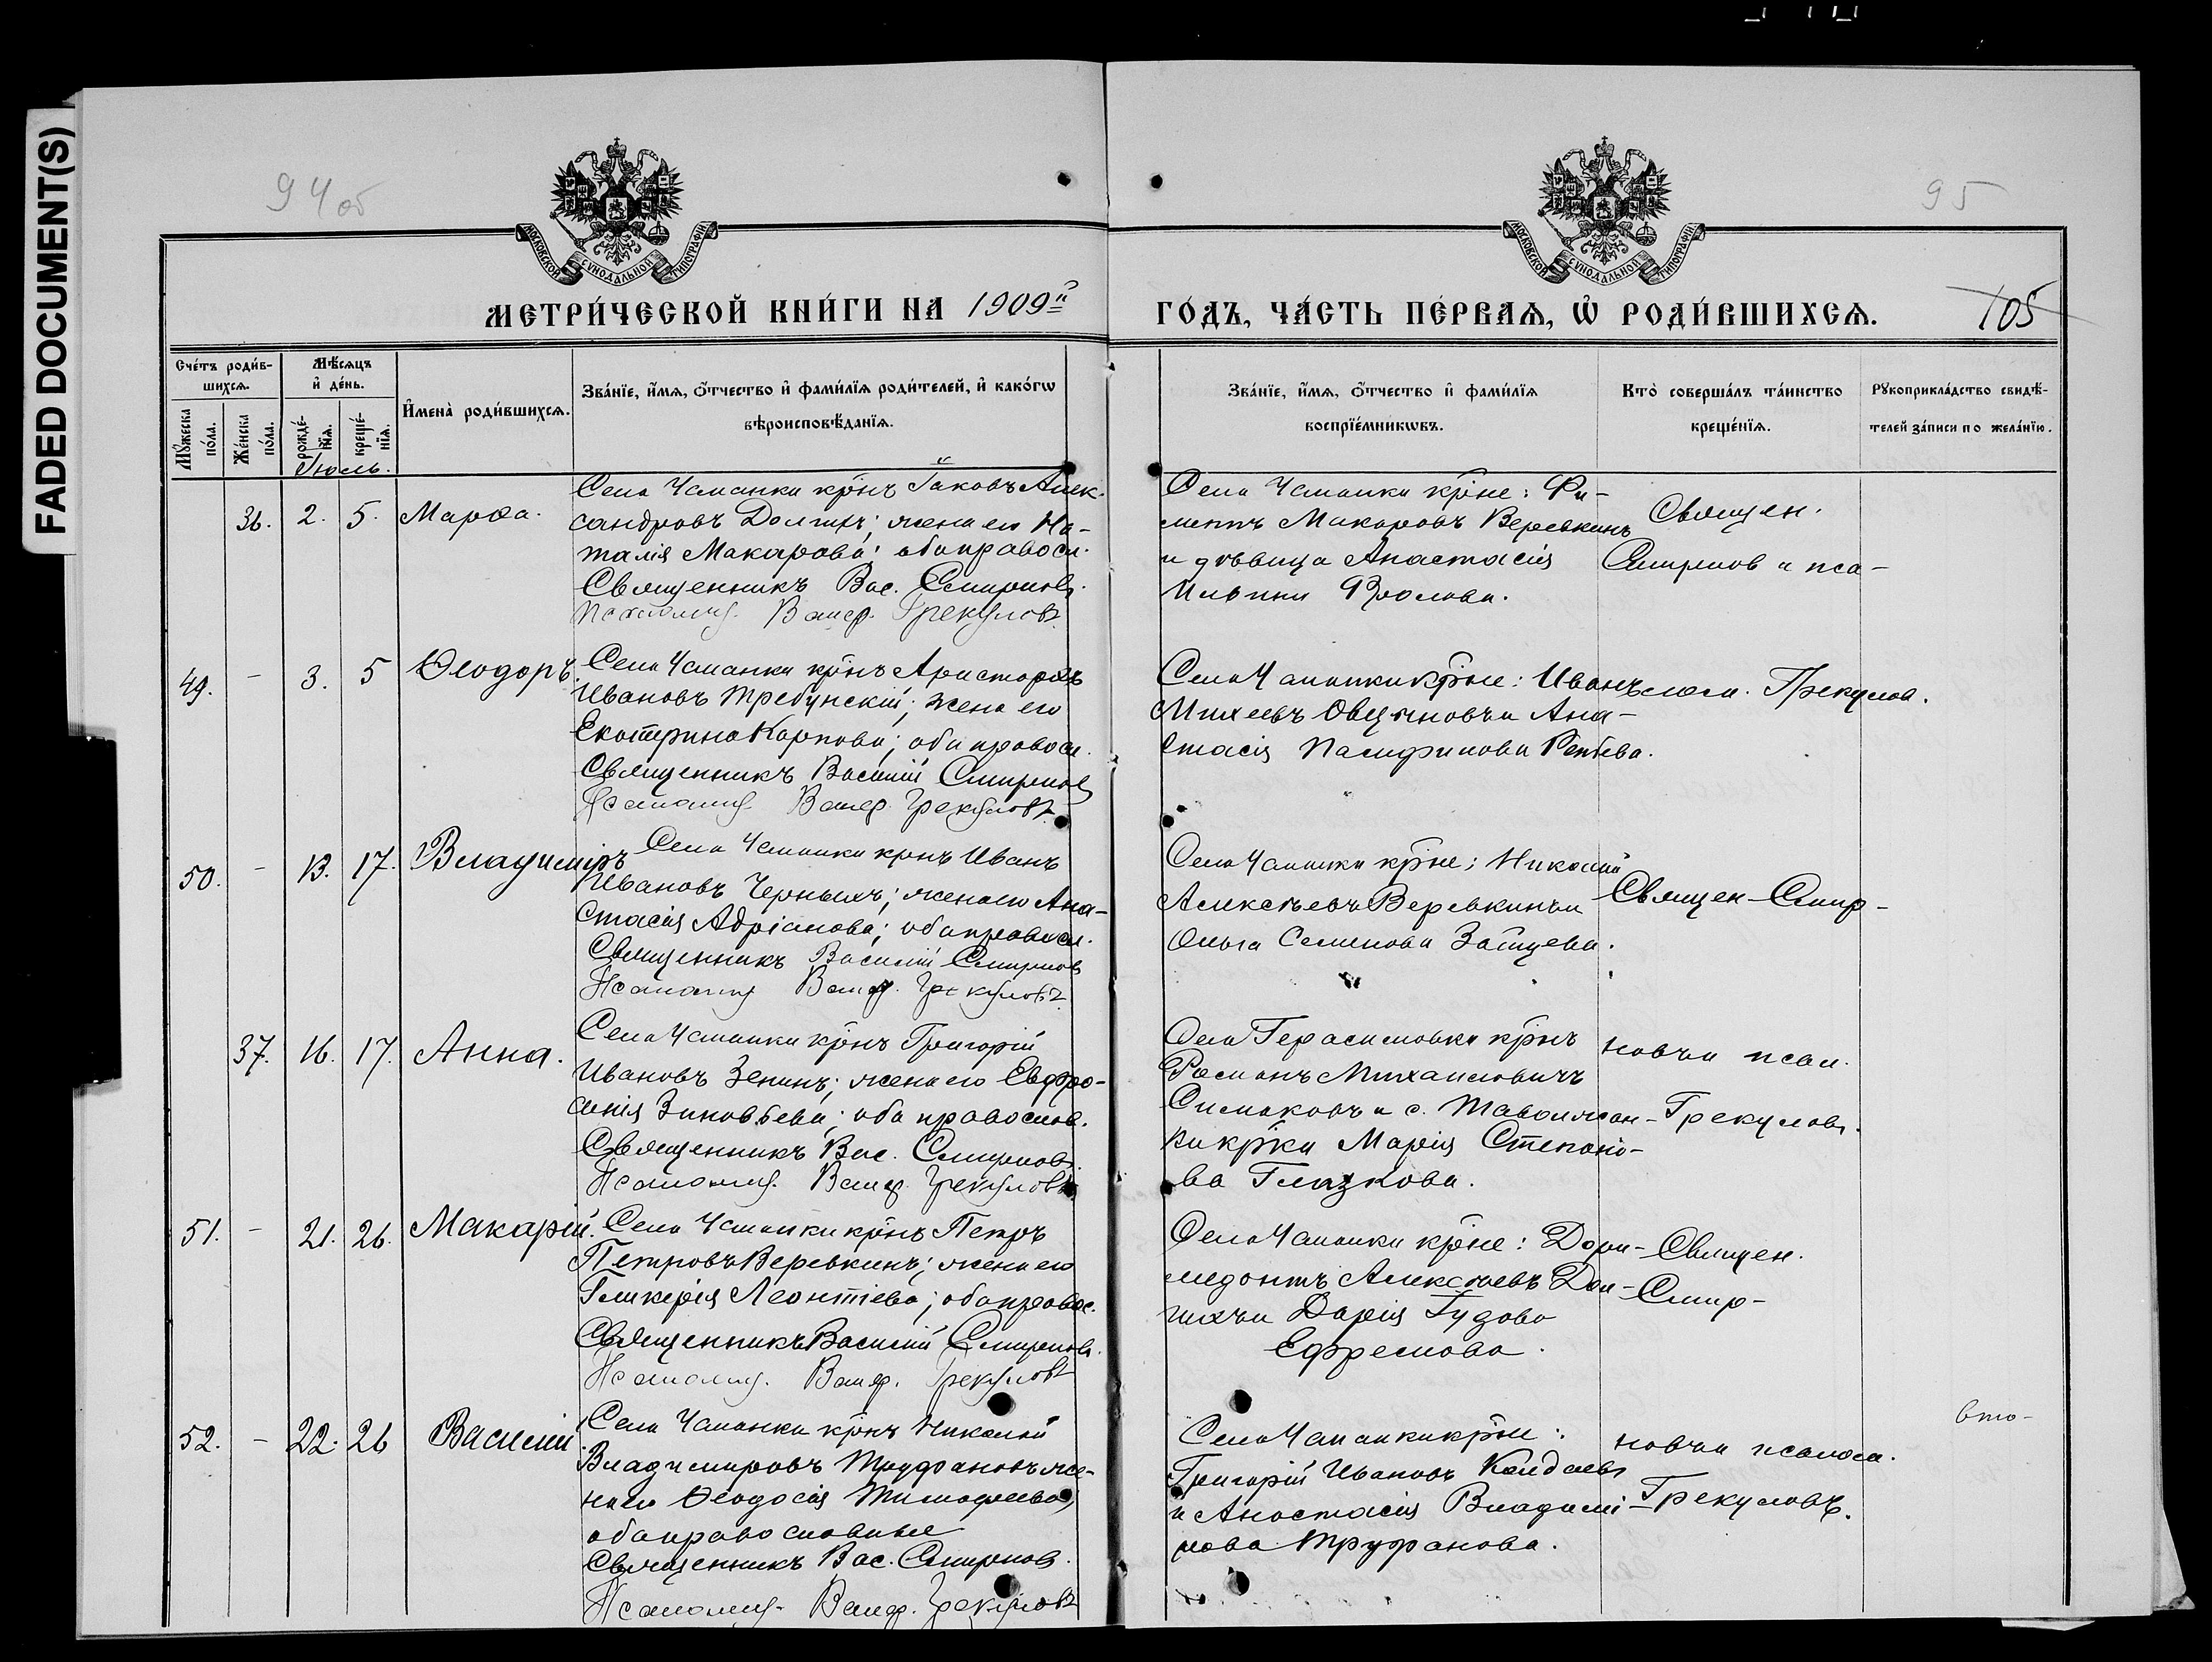 FADED DOCUMENT(S)
94 об
95
МОСКОВСКОЙ СУНОДАЛЬНОЙ ТИПОГРАФІИ
МОСКОВСКОЙ СУНОДАЛЬНОЙ ТИПОГРАФІИ
МЕТРИ́ЧЕСКОЙ КНИ́ГИ НА 1909й
ГО́ДЪ, ЧА́СТЬ ПЕ́РВАѦ, Ѡ҆ РОДИ́ВШИХСѦ.
105
Сче́тъ роди́в-
шихсѧ.
Мꙋ́жеска
по́ла.
Же́нска
по́ла.
Мѣ́сѧцъ
и҆ де́нь.
рожде́-
нїѧ.
креще́-
нїѧ.
И҆мена̀ роди́вшихсѧ.
Зва́нїе, и҆́мѧ, ѻ҆́тчество и҆ фами́лїѧ роди́телей, и҆ како́гѡ
вѣроисповѣ́данїѧ.
Зва́нїе, и҆́мѧ, ѻ҆́тчество и҆ фами́лїѧ
воспрїе́мникѡвъ.
Кто̀ соверша́лъ та́инство
креще́нїѧ.
Рꙋкоприкла́дство свидѣ́-
телей за́писи по жела́нїю.
Іюль.
36. 2. 5. Марѳа.
Села Чаманки крнъ Іаковъ Алек-
сандровъ Долгихъ; жена его На-
талія Макарова: оба правосл.
Священникъ Вас. Смирновъ.
Псаломщ. Валер. Грекуловъ
Села Чаманки крне: Фи-
Макаровъ Веревкинъ
и дѣвица Анастасія
Ильина Фролова.
Священ.
Смирнов и пса-
49. - 3. 5 Ѳеодоръ.
Села Чаманки крнъ Аристархъ
Ивановъ Требунскій; жена его
Екатерина Карпова; оба правосл.
Священникъ Василій Смирновъ
Псаломщ. Валер. Грекуловъ.
Села Чаманки крне: Иванъ
Михеевъ Овцыновъ и Ана-
стасія Памфилова Репьева.
лом. Грекулов.
50. - 13. 17. Владиміръ
Села Чаманки крнъ Иванъ
Ивановъ Черныхъ; жена его Ана-
стасія Адріанова; оба правосл.
Священникъ Василій Смирновъ
Псаломщ Валер. Грекуловъ
Села Чаманки крне; Николай
Алексѣевъ Веревкинъ и
Ольга Семенова Зайцева.
Священ Смир-
37. 16. 17. Анна.
Села Чаманки крнъ Григорій
Ивановъ Зенинъ; жена его Евфро-
синія Зиновьева; оба правослов.
Священникъ Вас. Смирновъ.
Псаломщ. Валер. Грекуловъ.
Села Герасимовки крнъ
Романъ Михаиловичъ
Симаковъ и с. Таволжан-
ки крка Марія Степано-
ва Глазкова.
новъ и псал.
Грекуловъ.
51. - 21. 26. Макарій.
Села Чаманки крнъ Петръ
Петровъ Веревкинъ; жена его
Гликерія Леонтіева; оба правос.
Священникъ Василій Смирновъ.
Псаломщ. Валер. Грекуловъ
Села Чаманки крне: Дори-
медонтъ Алексѣевъ Дол-
гихъ и Дарія Гудова
Ефремова.
Священ.
Смир-
52. - 22. 26 Василій
Села Чаманки крнъ Николай
Владимировъ Труфановъ же-
на его Ѳеодосія Тимофеева,
оба православные
Священникъ Вас. Смирновъ.
Псаломщ. Валер. Грекуловъ
Села Чаманки крне:
Григорій Ивановъ Калдаевъ
и Анастасія Владимі-
рова Труфанова.
новъ и псалом.
Грекуловъ.
вто-